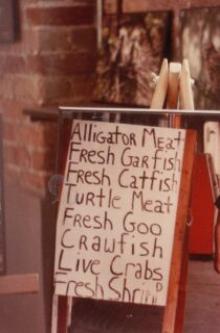 Alligator Meat
Fresh Garfish
Fresh Catfish
Turtle Meat
Fresh Goo
Crawfish
Live Crabs
Fresh